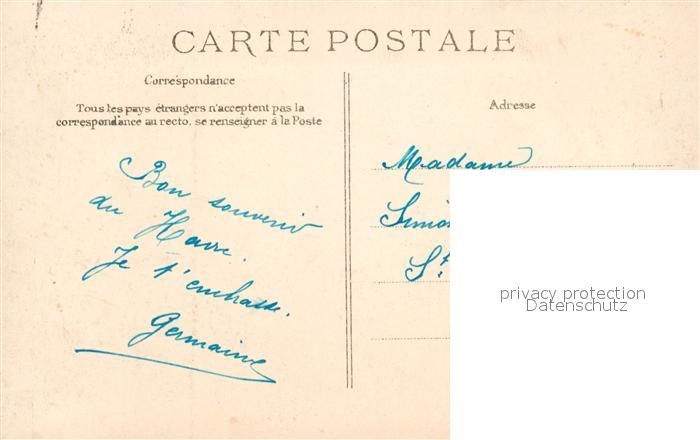 CARTE POSTALE
Correspondance
Tous les pays étrangers n'acceptent pas la
correspondance au recto, se renseigner à la Poste
Adresse
Bon souvenir
du Havre.
Je t'embrasse.
Germaine
Madame
Simo
St
privacy protection
Datenschutz